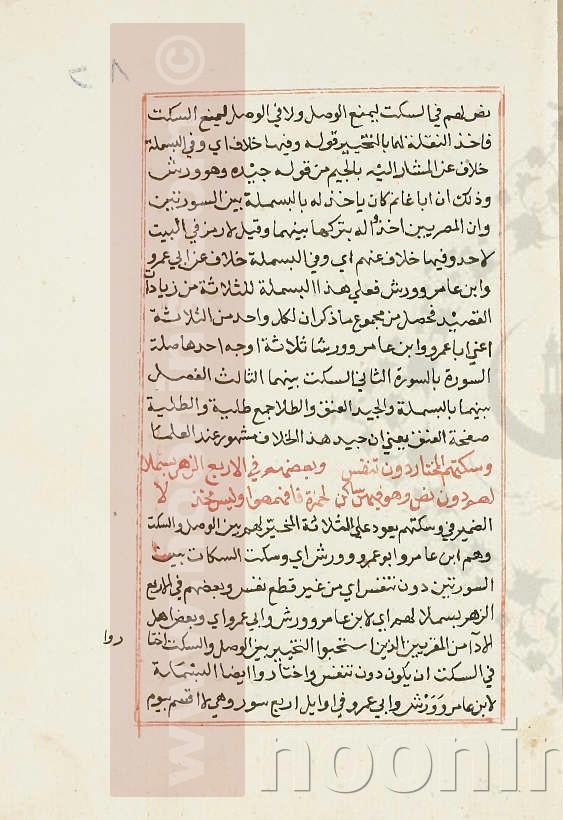 نص لهم في السكت ليمنع الوصل ولا في الوصل ليمنع السكت
فاخذ النقلة لهما بالتخيير قوله وفيها خلاف اي وفي البسملة
خلاف عن المشار اليه بالجيم من قوله جيده وهو ورش
وذلك ان ابا غانم كان ياخذ له بالبسملة بين السورتين
وان المصريين اخذوا له بتركها بينهما وقيل لا رمز في البيت
لاحد وفيها خلاف عنهم اي وفي البسملة خلاف عن ابي عمرو
وابن عامر وورش فعلي هذا البسملة للثلاثة من زيادات
القصيد فحصل من مجموع ما ذكر ان لكل واحد من الثلاثة
اعني ابا عمرو وابن عامر وورشا ثلاثة اوجه احدها صلة
السورة بالسورة الثاني السكت بينهما الثالث الفصل
بينهما بالبسملة والجيد العنق والطلا جمع طلية والطلية
صفحة العنق يعني ان جيد هذا الخلاف مشهور عند العلما
وسكتهم المختار دون تنفس وبعضهم في الاربع الزهر بسملا
لهم دون نص وهو فيهن ساكت لحمزة فافهمه وليس مخذلا
الضمير في وسكتهم يعود على الثلاثة المخير لهم بين الوصل والسكت
وهم ابن عامر وابو عمرو وورش اي وسكت السكات بين
السورتين دون تنفس اي من غير قطع نفس وبعضهم في الاربع
الزهر بسملا لهم اي لابن عامر وورش وابي عمرو اي وبعض اهل
الادا من المقريين الذين استحبوا التخيير بين الوصل والسكت اختا
روا
في السكت ان يكون دون تنفس واختاروا ايضا البسملة
لابن عامر وورش وابي عمرو في اوايل اربع سور وهي لا اقسم بيوم
www.
©
noonin